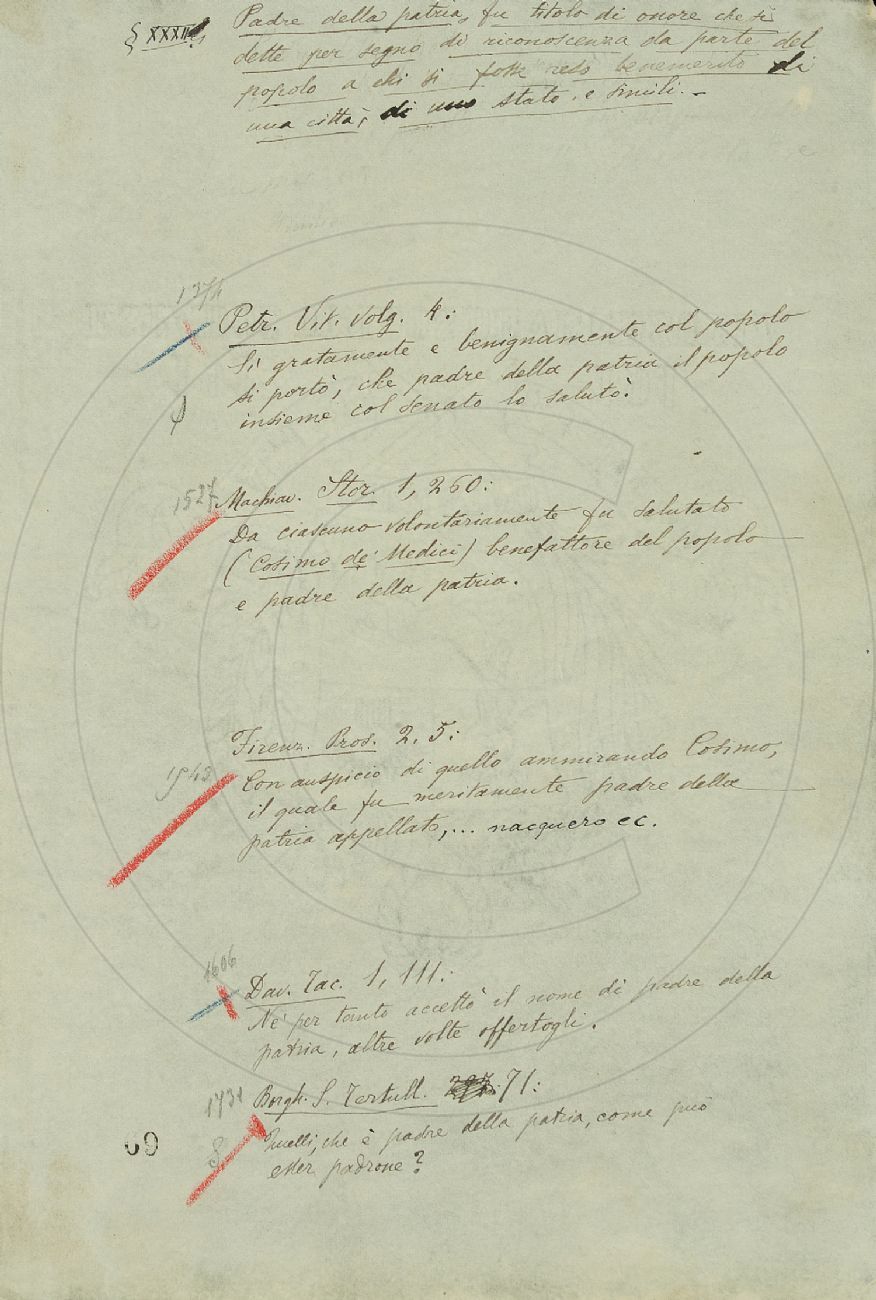 § XXXII
Padre della patria, fu titolo di onore che si
dette per segno di riconoscenza da parte del
popolo a chi si fosse reso benemerito di
una città, di uno stato, e simili. –
1374
Petr. Vit. volg. 4:
Sì gratamente e benignamente col popolo
si portò, che padre della patria il popolo
insieme col senato lo salutò.
1527
Machiav. Stor. 1, 260:
Da ciascuno volontariamente fu salutato
(Cosimo de' Medici) benefattore del popolo
e padre della patria.
1543
Firenz. Pros. 2, 5:
Con auspicio di quello ammirando Cosimo,
il quale fu meritamente padre della
patria appellato,... nacquero ec.
1606
Dav. Tac. 1, 111:
Nè per tanto accettò il nome di padre della
patria, altre volte offertogli.
1731
Borgh. S. Tertull. 71:
Quelli, che è padre della patria, come può
esser padrone?
69